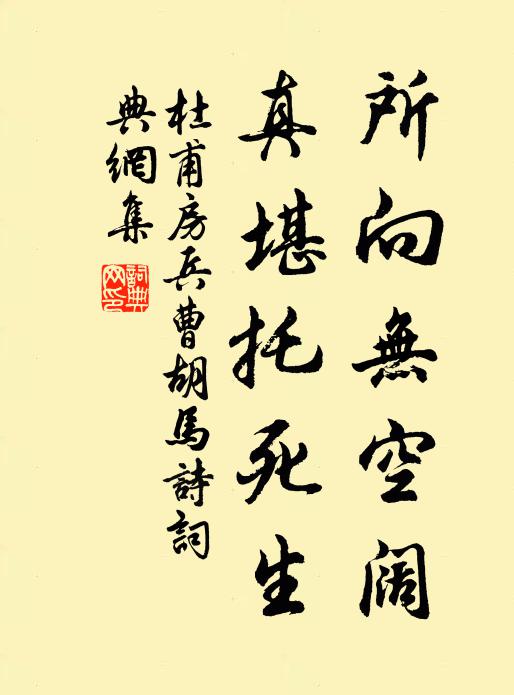 所向無空阔
真堪托死生
杜甫房兵曹胡馬詩詞
典網集
詞典
网印